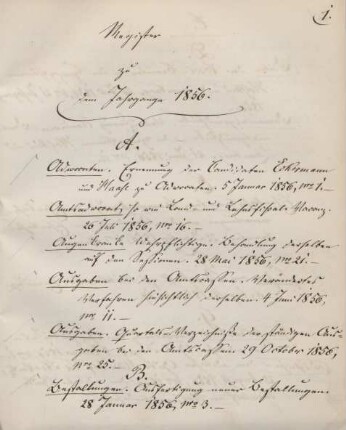 1.
Register
zu
dem Jahrgange 1856.
A.
Advocaten. Ernennung der Candidaten Eckermann
und Maaß zu Advocaten. 5 Januar 1856, no 1.
Amtsadvocat, so wie Land- und
20 Juli 1856, no 16.
Augenkranke Wehrpflichtige. Behandlung derselben
auf den Sessionen. 28 Mai 1856, no 21.
Ausgaben bei den Amtscassen. Verändertes
Verfahren hinsichtlich derselben. 4 Juni 1856
no 11.
Ausgaben. Quartals-Verzeichnisse der ständigen Aus-
gaben bei den Amtscassen 29 October 1856,
no 25.
B.
Bestallungen. Ausfertigung neuer Bestallungen.
28 Januar 1856, no 3.